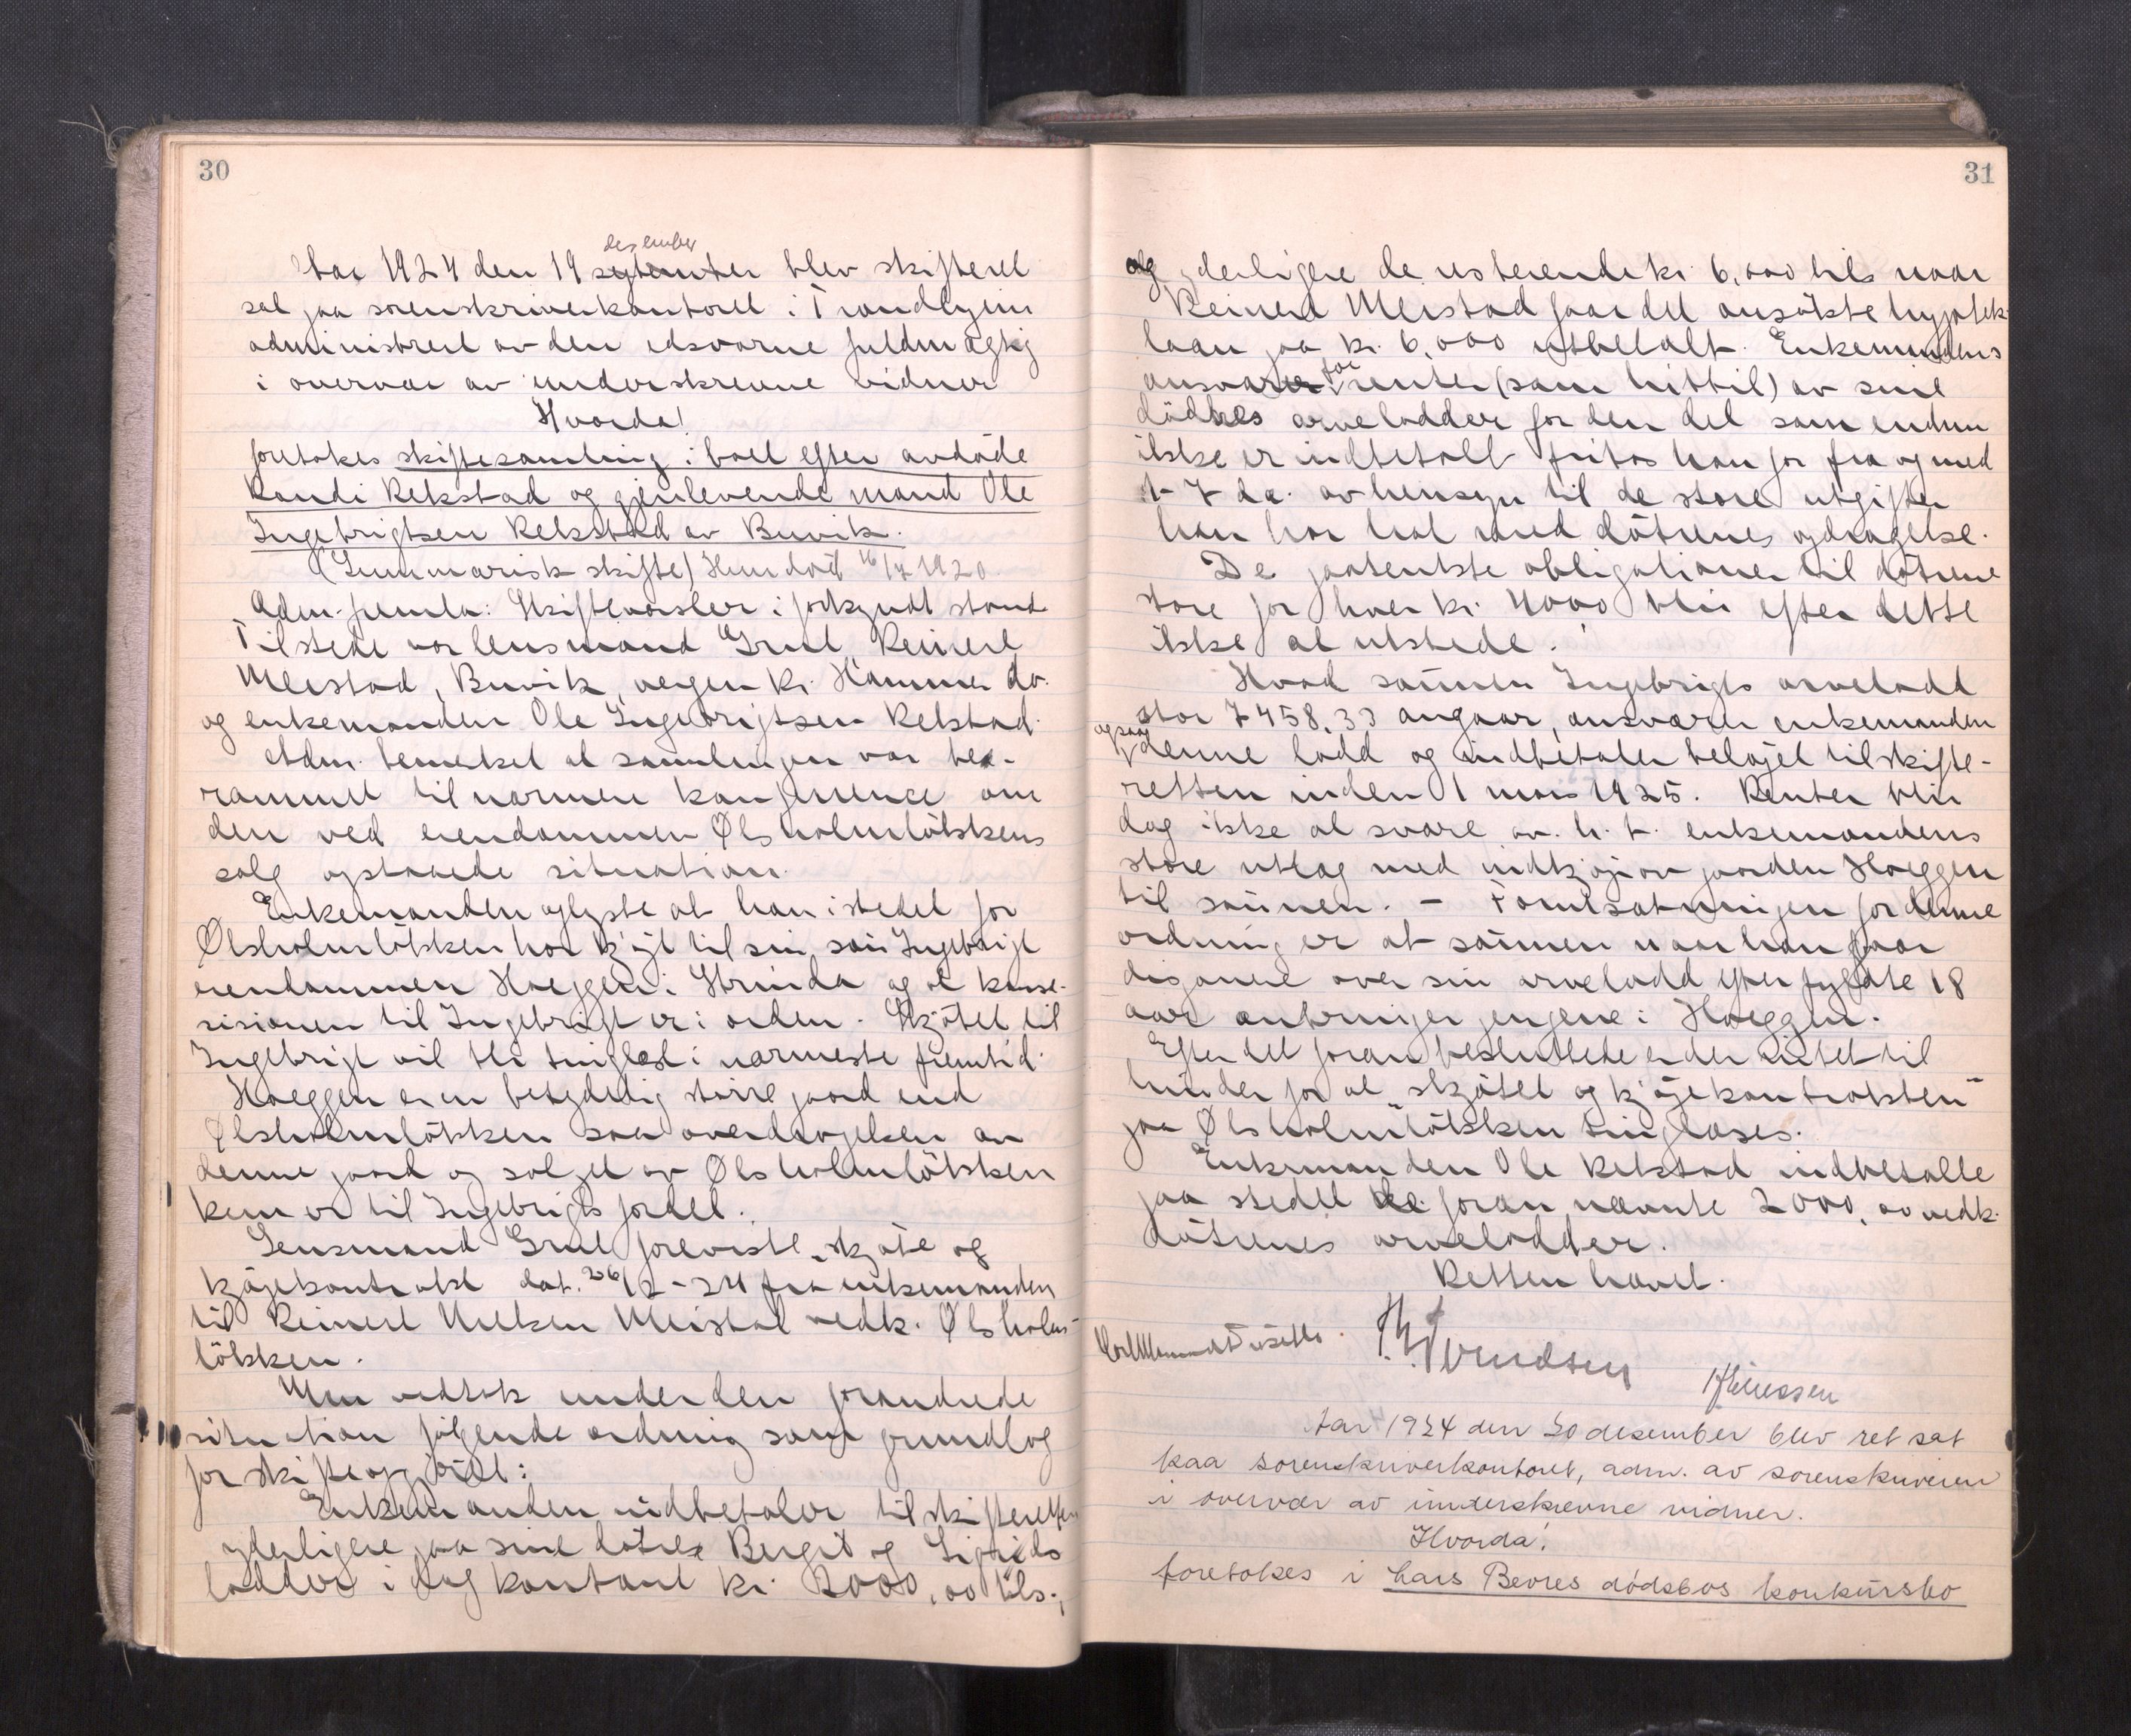 30
desember
Aar 1924 den 19 september blev skifteret
sat paa sorenskriverkontoret i Trondhjem
administrert av den edsvorne fuldmægtig
i overvær av underskrevne vidner
Hvorda!
foretokes skiftesamling i boet efter avdöde
Randi Rekstad og gjenlevende mand Ole
Ingebrigtsen Rekstad av Buvik.
(Summarisk skifte) Hun död 16/7 1920
Adm. freml: Skiftevarsler i forkyndt stand
Tilstede var lensmand Grut, Reinert
Meistad, Buvik, vergen Kr. Hammer do.
og enkemanden Ole Ingebrigtsen Rekstad.
Adm. bemerket at samlingen var be-
rammet til nærmere konference om
den ved eiendommen Ølsholmlökkens
salg opstaaede situation.
Enkemanden oplyste at han istedet for
Ølsholmlökken har kjöpt til sin sön Ingebrigt
eiendommen Hoeggen i Strinda og at konse-
sisionen til Ingebrigt er i orden. Skjötet til
Ingebrigt vil bli tinglæst i nærmeste fremtid.
Hoeggen er en betydelig större gaard end
Ølsholmlökken saa overdragelsen av
denne gaard og salget av Ølsholmlökken
kun er til Ingebrigts fordel.
Lensmand Grut foreviste skjöte og
kjöpekontrakt dat. 26/2-24 fra enkemanden
til Reinert Meistad vedk. Ølsholm-
lökken.
Man vedtok under den forandrede
situation fölgende ordning som grundlag
for skifteopgjöret:
Enkemanden indbetaler til skifteretten
yderligere paa sine dötre Bergit og Sigrids
lodder i dag kontant kr. 2000,00 tils.,
31
og yderligere de resterende kr. 6,000 tils naar
Reinert Meistad faar det ansökte hypotek-
laan paa kr. 6,000 utbetalt. Enkemandens
for
ansvarer renter (som hittil) av sine
dötres arvelodder for den del som endnu
ikke er indbetalt fritas han for fra og med
1-7 da. av hensyn til de store utgifter
han har hat med dötrenes opdragelse.
De paatenkte obligationer til dötrene
store for hver kr. 4000 blir efter dette
ikke at utstede.
Hvad sönnen Ingebrigts arvelodd
stor 7458,33 angaar, ansvarer enkemanden
ogsaa
denne lodd og indbetaler belöpet til skifte-
retten inden 1 mars 1925. Renter blir
dog ikke at svare av. h. t. enkemandens
store utlæg med indkjöp av gaarden Hoeggen
til sönnen. - Forutsætningen for denne
ordning er at sönnen naar han faar
disponere over sin arvelodd efter fyldte 18
aar anbringer pengene i Hoeggen.
Efter det foran besluttede er der intet til
hinder for at "skjötet og kjöpekontrakten"
paa Ølsholmlökken tinglæses.
Enkemanden Ole Rekstad indbetalte
paa stedet de foran nævnte 2000,00 vedk.
dötrenes arvelodder.
Retten hævet.
Aar 1924 den 20 desember blev ret sat
paa sorenskriverkontoret, adm. av sorenskriveren
i overvær av underskrevne vidner.
Hvorda!
foretokes i Lars Bevres dödsbos konkursbo